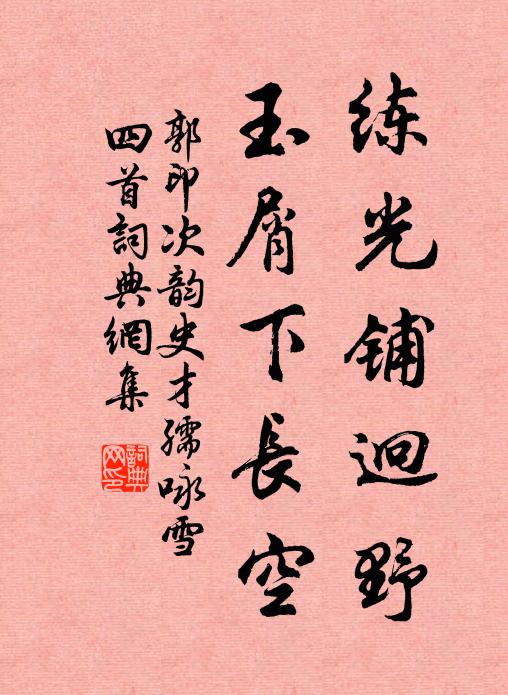 练光铺迥野
玉屑下長空
郭印次韵史才孺咏雪
四首詞典網集
詞典
网印